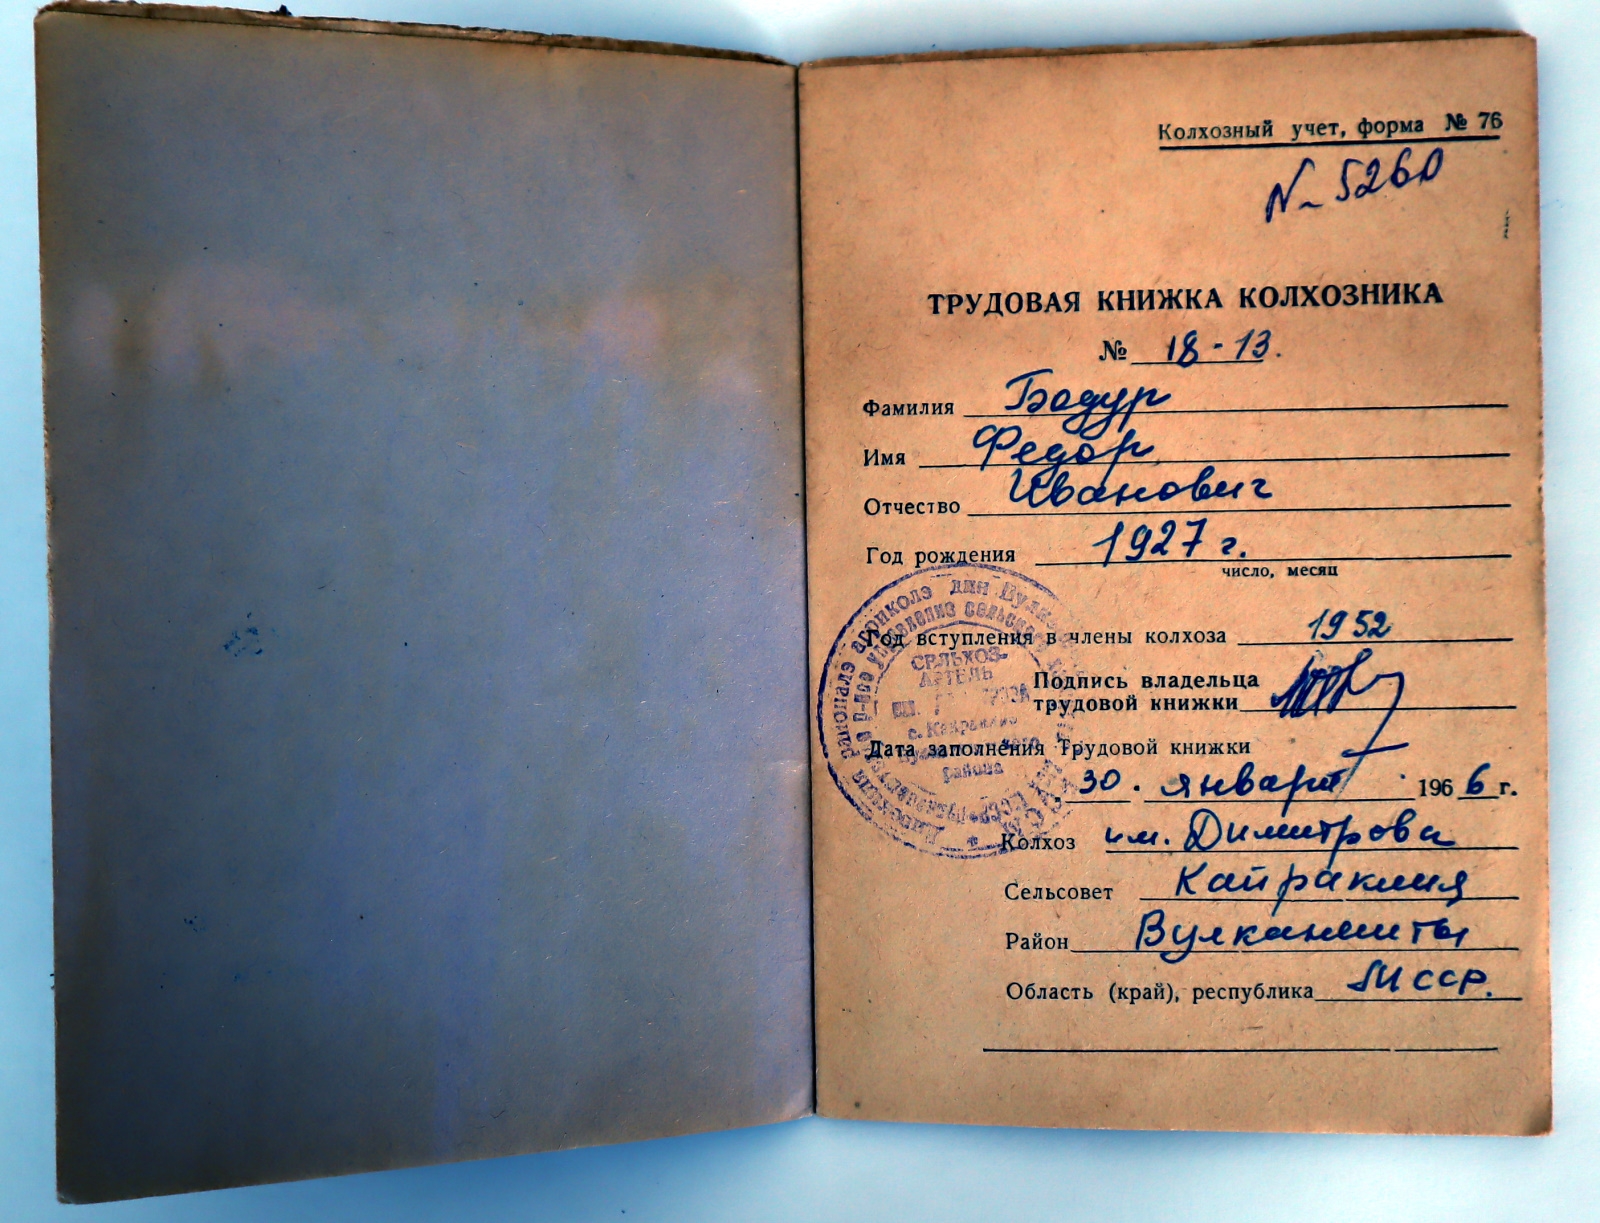 Колхозный учет, форма № 76
N 5260
ТРУДОВАЯ КНИЖКА КОЛХОЗНИКА
№ 18-13.
Фамилия Бадур
Имя Федор
Отчество Иванович
Год рождения 1927 г.
число, месяц
Год вступления в члены колхоза 1952
Подпись владельца
трудовой книжки
Дата заполнения трудовой книжки
30. января 1966 г.
Колхоз им. Димитрова
Сельсовет Кайраклия
Район Вулканешты
Область (край), республика МССР.
СЕЛЬХОЗ-
АРТЕЛЬ
с. Кайраклия
района